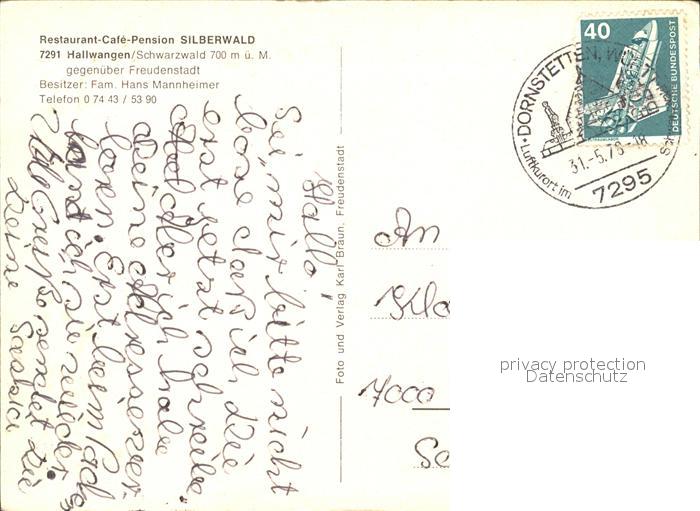 Restaurant-Café-Pension SILBERWALD
7291 Hallwangen/Schwarzwald 700 m ü. M.
gegenüber Freudenstadt
Besitzer: Fam. Hans Mannheimer
Telefon 0 74 43 / 53 90
Hallo!
Sei mir bitte nicht
böse daß ich Dir
erst jetzt schreibe
Aber ich habe
Deine Adresse ver-
loren. Erst beim
fand ich sie wieder.
Viele Grüße sendet Dir
Deine
Foto und Verlag Karl Braun, Freudenstadt
40
DEUTSCHE BUNDESPOST
DORNSTETTEN, WÜRTT
Luftkurort im
31.-5.78-18
7295
An
7000
privacy protection
Datenschutz